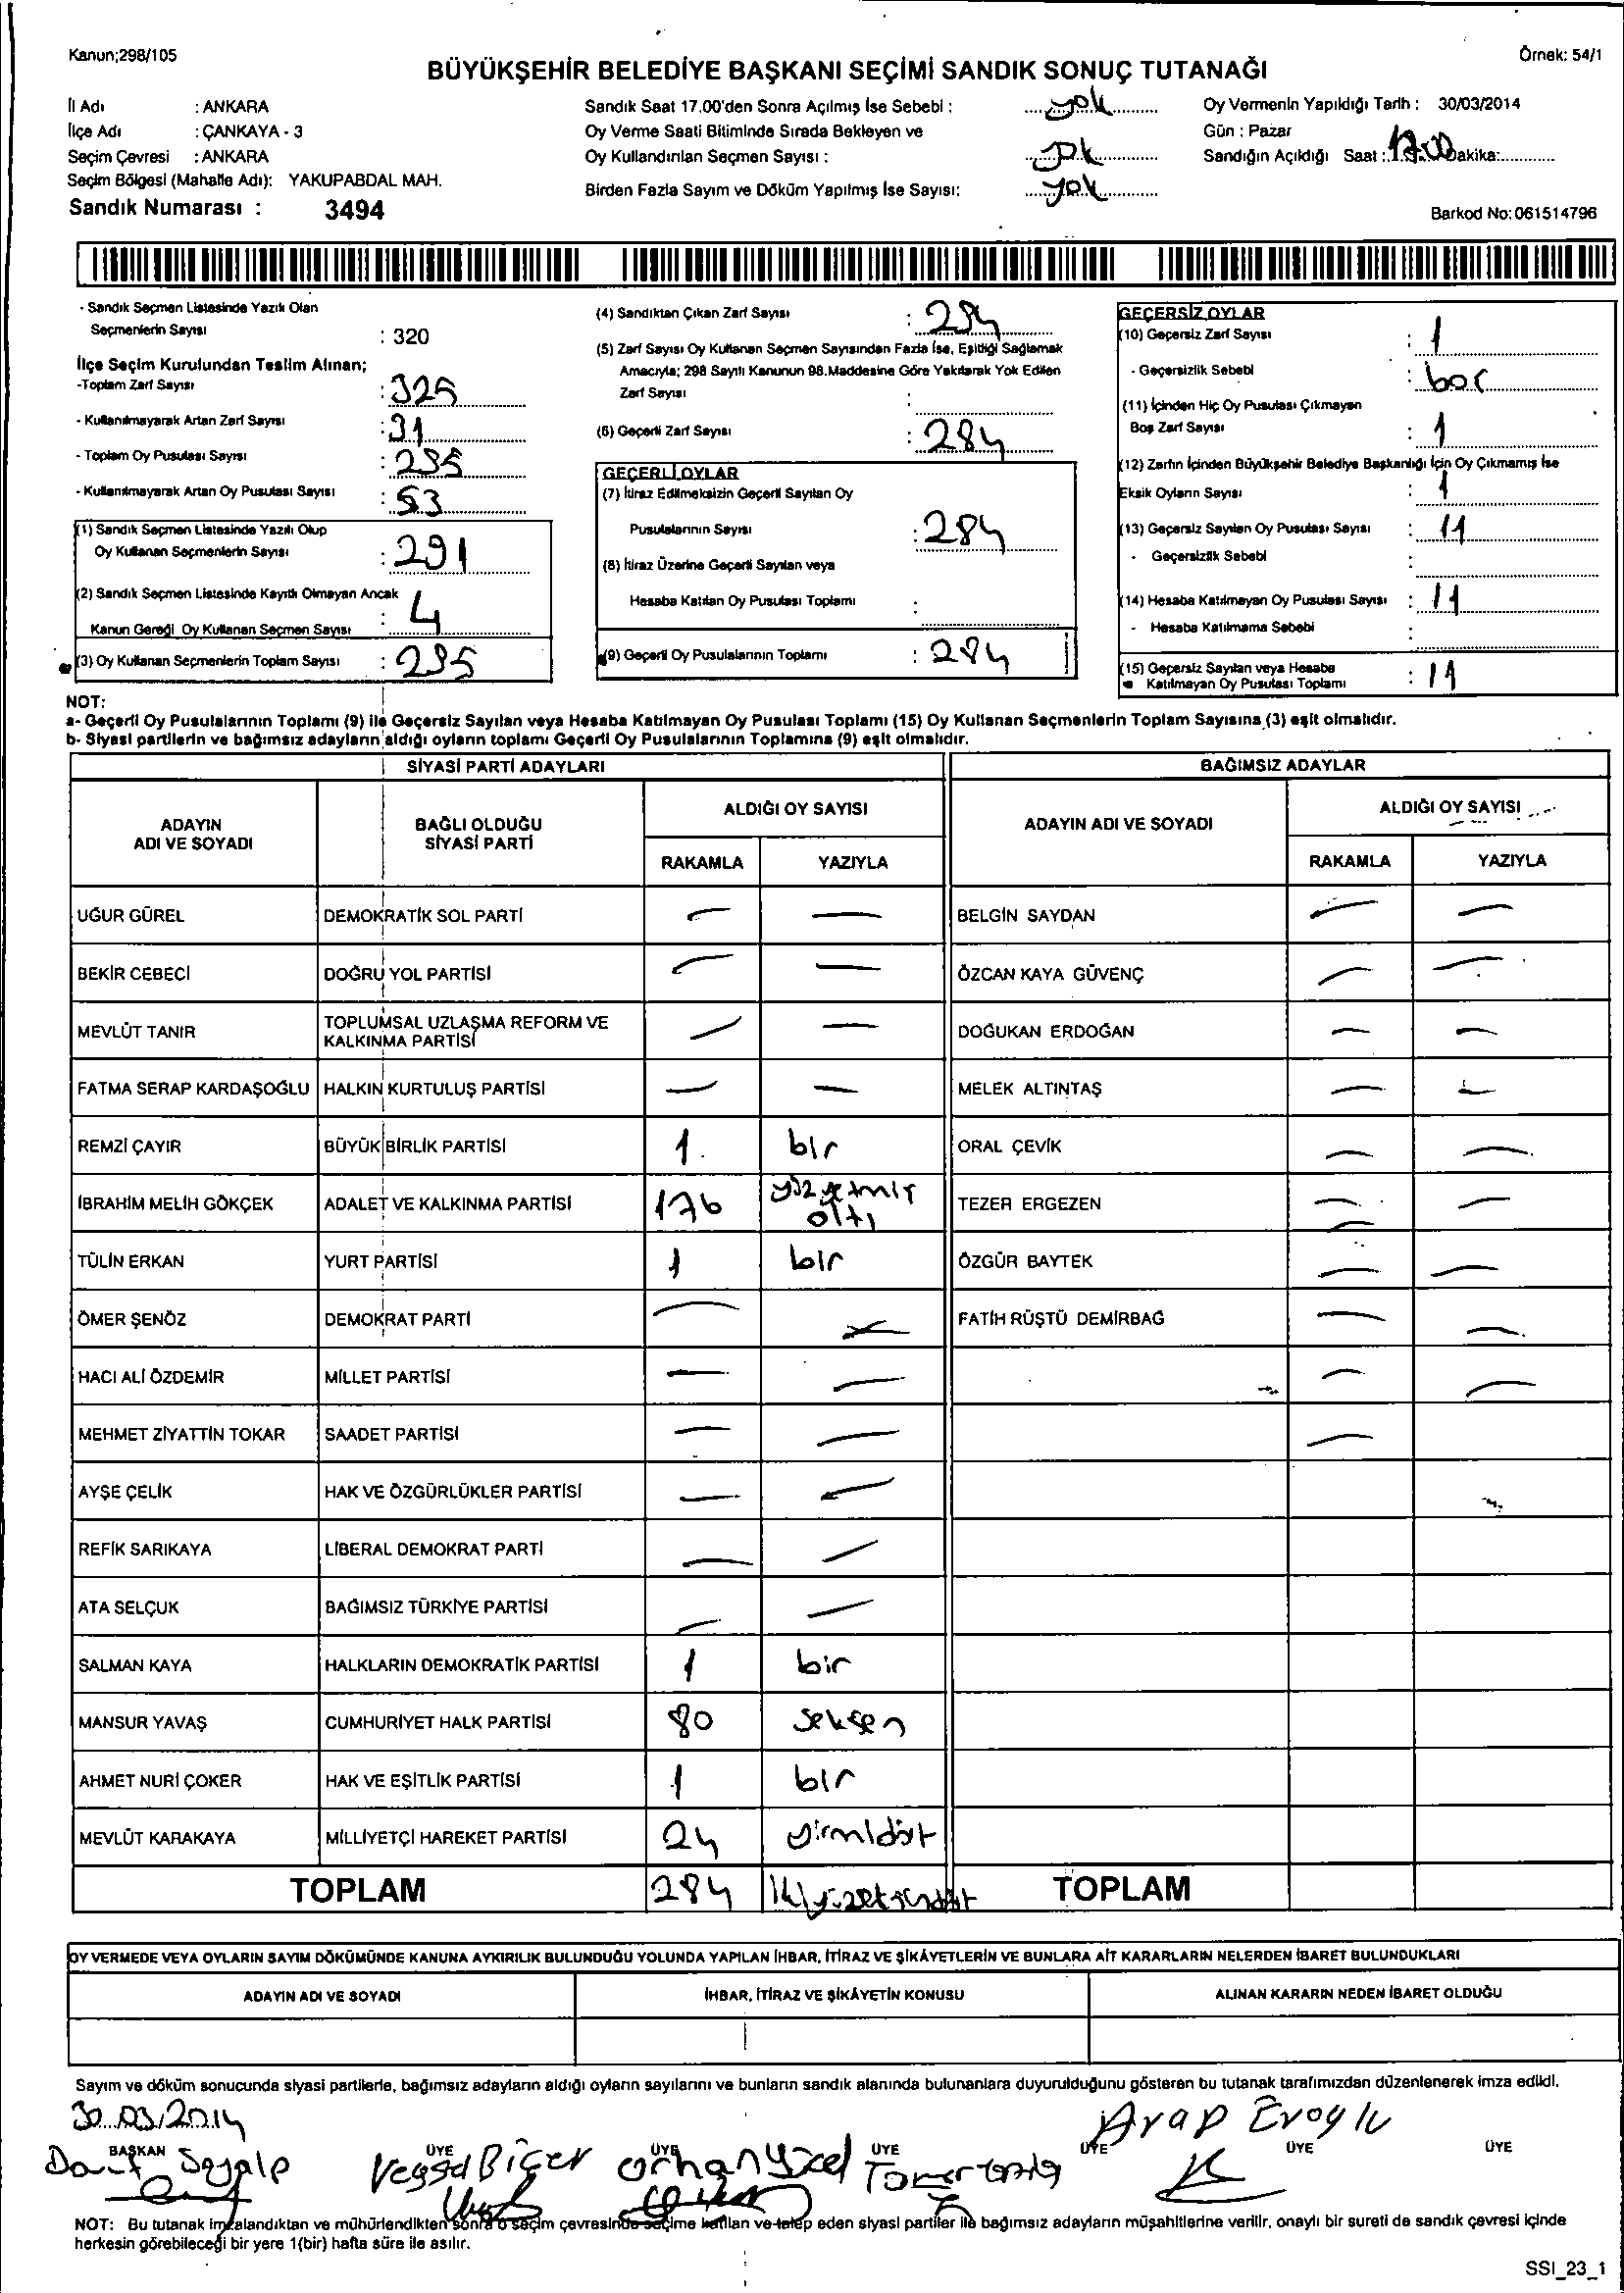 Kanun;298/105
Örnek: 54/1
BÜYÜKŞEHİR BELEDİYE BAŞKANI SEÇİMİ SANDIK SONUÇ TUTANAĞI
İl Adı : ANKARA
İlçe Adı : ÇANKAYA - 3
Seçim Çevresi : ANKARA
Seçim Bölgesi (Mahalle Adı): YAKUPABDAL MAH.
Sandık Numarası : 3494
Sandık Saat 17.00'den Sonra Açılmış İse Sebebi : yok
Oy Verme Saati Bitiminde Sırada Bekleyen ve
Oy Kullandırılan Seçmen Sayısı : yok
Birden Fazla Sayım ve Döküm Yapılmış İse Sayısı: yok
Oy Vermenin Yapıldığı Tarih : 30/03/2014
Gün : Pazar
Sandığın Açıldığı Saat : 17.00 Dakika:
Barkod No: 061514796
- Sandık Seçmen Listesinde Yazılı Olan
Seçmenlerin Sayısı : 320
İlçe Seçim Kurulundan Teslim Alınan;
-Toplam Zarf Sayısı : 325
- Kullanılmayarak Artan Zarf Sayısı : 31
- Toplam Oy Pusulası Sayısı : 295
- Kullanılmayarak Artan Oy Pusulası Sayısı : 53
(1) Sandık Seçmen Listesinde Yazılı Olup
Oy Kullanan Seçmenlerin Sayısı : 291
(2) Sandık Seçmen Listesinde Kayıtlı Olmayan Ancak
Kanun Gereği Oy Kullanan Seçmen Sayısı : 4
(3) Oy Kullanan Seçmenlerin Toplam Sayısı : 295
(4) Sandıktan Çıkan Zarf Sayısı : 294
(5) Zarf Sayısı Oy Kullanan Seçmen Sayısından Fazla İse, Eşitliği Sağlamak
Amacıyla; 298 Sayılı Kanunun 98.Maddesine Göre Yakılarak Yok Edilen
Zarf Sayısı :
(6) Geçerli Zarf Sayısı : 284
GEÇERLİ OYLAR
(7) İtiraz Edilmeksizin Geçerli Sayılan Oy
Pusulalarının Sayısı : 284
(8) İtiraz Üzerine Geçerli Sayılan veya
Hesaba Katılan Oy Pusulası Toplamı :
(9) Geçerli Oy Pusulalarının Toplamı : 284
GEÇERSİZ OYLAR
(10) Geçersiz Zarf Sayısı : 1
- Geçersizlik Sebebi :
(11) İçinden Hiç Oy Pusulası Çıkmayan
Boş Zarf Sayısı : 1
(12) Zarfın İçinden Büyükşehir Belediye Başkanlığı İçin Oy Çıkmamış İse
Eksik Oyların Sayısı : 1
(13) Geçersiz Sayılan Oy Pusulası Sayısı : 11
- Geçersizlik Sebebi :
(14) Hesaba Katılmayan Oy Pusulası Sayısı : 11
- Hesaba Katılmama Sebebi :
(15) Geçersiz Sayılan veya Hesaba
Katılmayan Oy Pusulası Toplamı : 11
NOT:
a- Geçerli Oy Pusulalarının Toplamı (9) ile Geçersiz Sayılan veya Hesaba Katılmayan Oy Pusulası Toplamı (15) Oy Kullanan Seçmenlerin Toplam Sayısına (3) eşit olmalıdır.
b- Siyasi partilerin ve bağımsız adayların aldığı oyların toplamı Geçerli Oy Pusulalarının Toplamına (9) eşit olmalıdır.
SİYASİ PARTİ ADAYLARI BAĞIMSIZ ADAYLAR
ADAYIN ADI VE SOYADI BAĞLI OLDUĞU SİYASİ PARTİ ALDIĞI OY SAYISI ADAYIN ADI VE SOYADI ALDIĞI OY SAYISI
RAKAMLA YAZIYLA RAKAMLA YAZIYLA
UĞUR GÜREL DEMOKRATİK SOL PARTİ — — BELGİN SAYDAN — —
BEKİR CEBECİ DOĞRU YOL PARTİSİ — — ÖZCAN KAYA GÜVENÇ — —
MEVLÜT TANIR TOPLUMSAL UZLAŞMA REFORM VE KALKINMA PARTİSİ — — DOĞUKAN ERDOĞAN — —
FATMA SERAP KARDAŞOĞLU HALKIN KURTULUŞ PARTİSİ — — MELEK ALTINTAŞ — —
REMZİ ÇAYIR BÜYÜK BİRLİK PARTİSİ 1 bir ORAL ÇEVİK — —
İBRAHİM MELİH GÖKÇEK ADALET VE KALKINMA PARTİSİ 176 yüz yetmiş altı TEZER ERGEZEN — —
TÜLİN ERKAN YURT PARTİSİ 1 bir ÖZGÜR BAYTEK — —
ÖMER ŞENÖZ DEMOKRAT PARTİ — — FATİH RÜŞTÜ DEMİRBAĞ — —
HACI ALİ ÖZDEMİR MİLLET PARTİSİ — — — —
MEHMET ZİYATTİN TOKAR SAADET PARTİSİ — — —
AYŞE ÇELİK HAK VE ÖZGÜRLÜKLER PARTİSİ — —
REFİK SARIKAYA LİBERAL DEMOKRAT PARTİ — —
ATA SELÇUK BAĞIMSIZ TÜRKİYE PARTİSİ — —
SALMAN KAYA HALKLARIN DEMOKRATİK PARTİSİ 1 bir
MANSUR YAVAŞ CUMHURİYET HALK PARTİSİ 80 Seksen
AHMET NURİ ÇOKER HAK VE EŞİTLİK PARTİSİ 1 bir
MEVLÜT KARAKAYA MİLLİYETÇİ HAREKET PARTİSİ 24 yirmidört
TOPLAM 284 ikiyüzseksendört TOPLAM
OY VERMEDE VEYA OYLARIN SAYIM DÖKÜMÜNDE KANUNA AYKIRILIK BULUNDUĞU YOLUNDA YAPILAN İHBAR, İTİRAZ VE ŞİKÂYETLERİN VE BUNLARA AİT KARARLARIN NELERDEN İBARET BULUNDUKLARI
ADAYIN ADI VE SOYADI İHBAR, İTİRAZ VE ŞİKÂYETİN KONUSU ALINAN KARARIN NEDEN İBARET OLDUĞU
Sayım ve döküm sonucunda siyasi partilerle, bağımsız adayların aldığı oyların sayılarını ve bunların sandık alanında bulunanlara duyurulduğunu gösteren bu tutanak tarafımızdan düzenlenerek imza edildi.
30.03/2014
Arap Eroglu
BAŞKAN ÜYE ÜYE ÜYE ÜYE ÜYE ÜYE
Veysel Biçer orhan yücel
NOT: Bu tutanak imzalandıktan ve mühürlendikten sonra o seçim çevresinde seçime katılan ve talep eden siyasi partiler ile bağımsız adayların müşahitlerine verilir, onaylı bir sureti de sandık çevresi içinde
herkesin görebileceği bir yere 1(bir) hafta süre ile asılır.
SSI_23_1